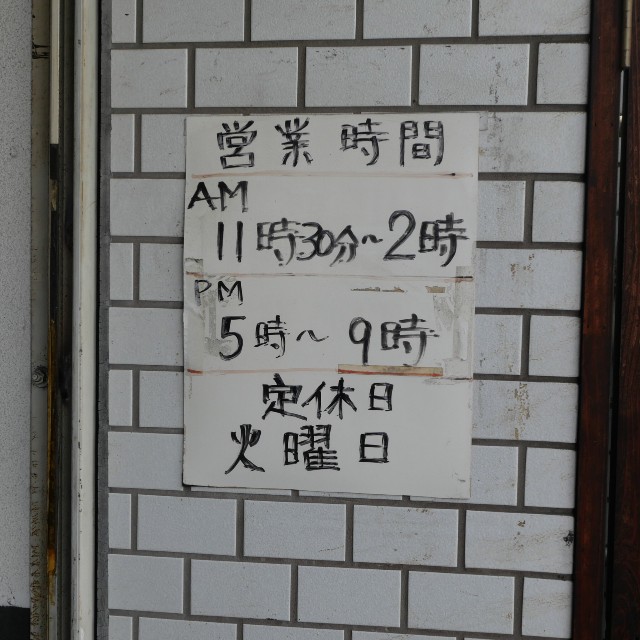 営業時間
AM
11時30分~2時
PM
5時~9時
定休日
火曜日